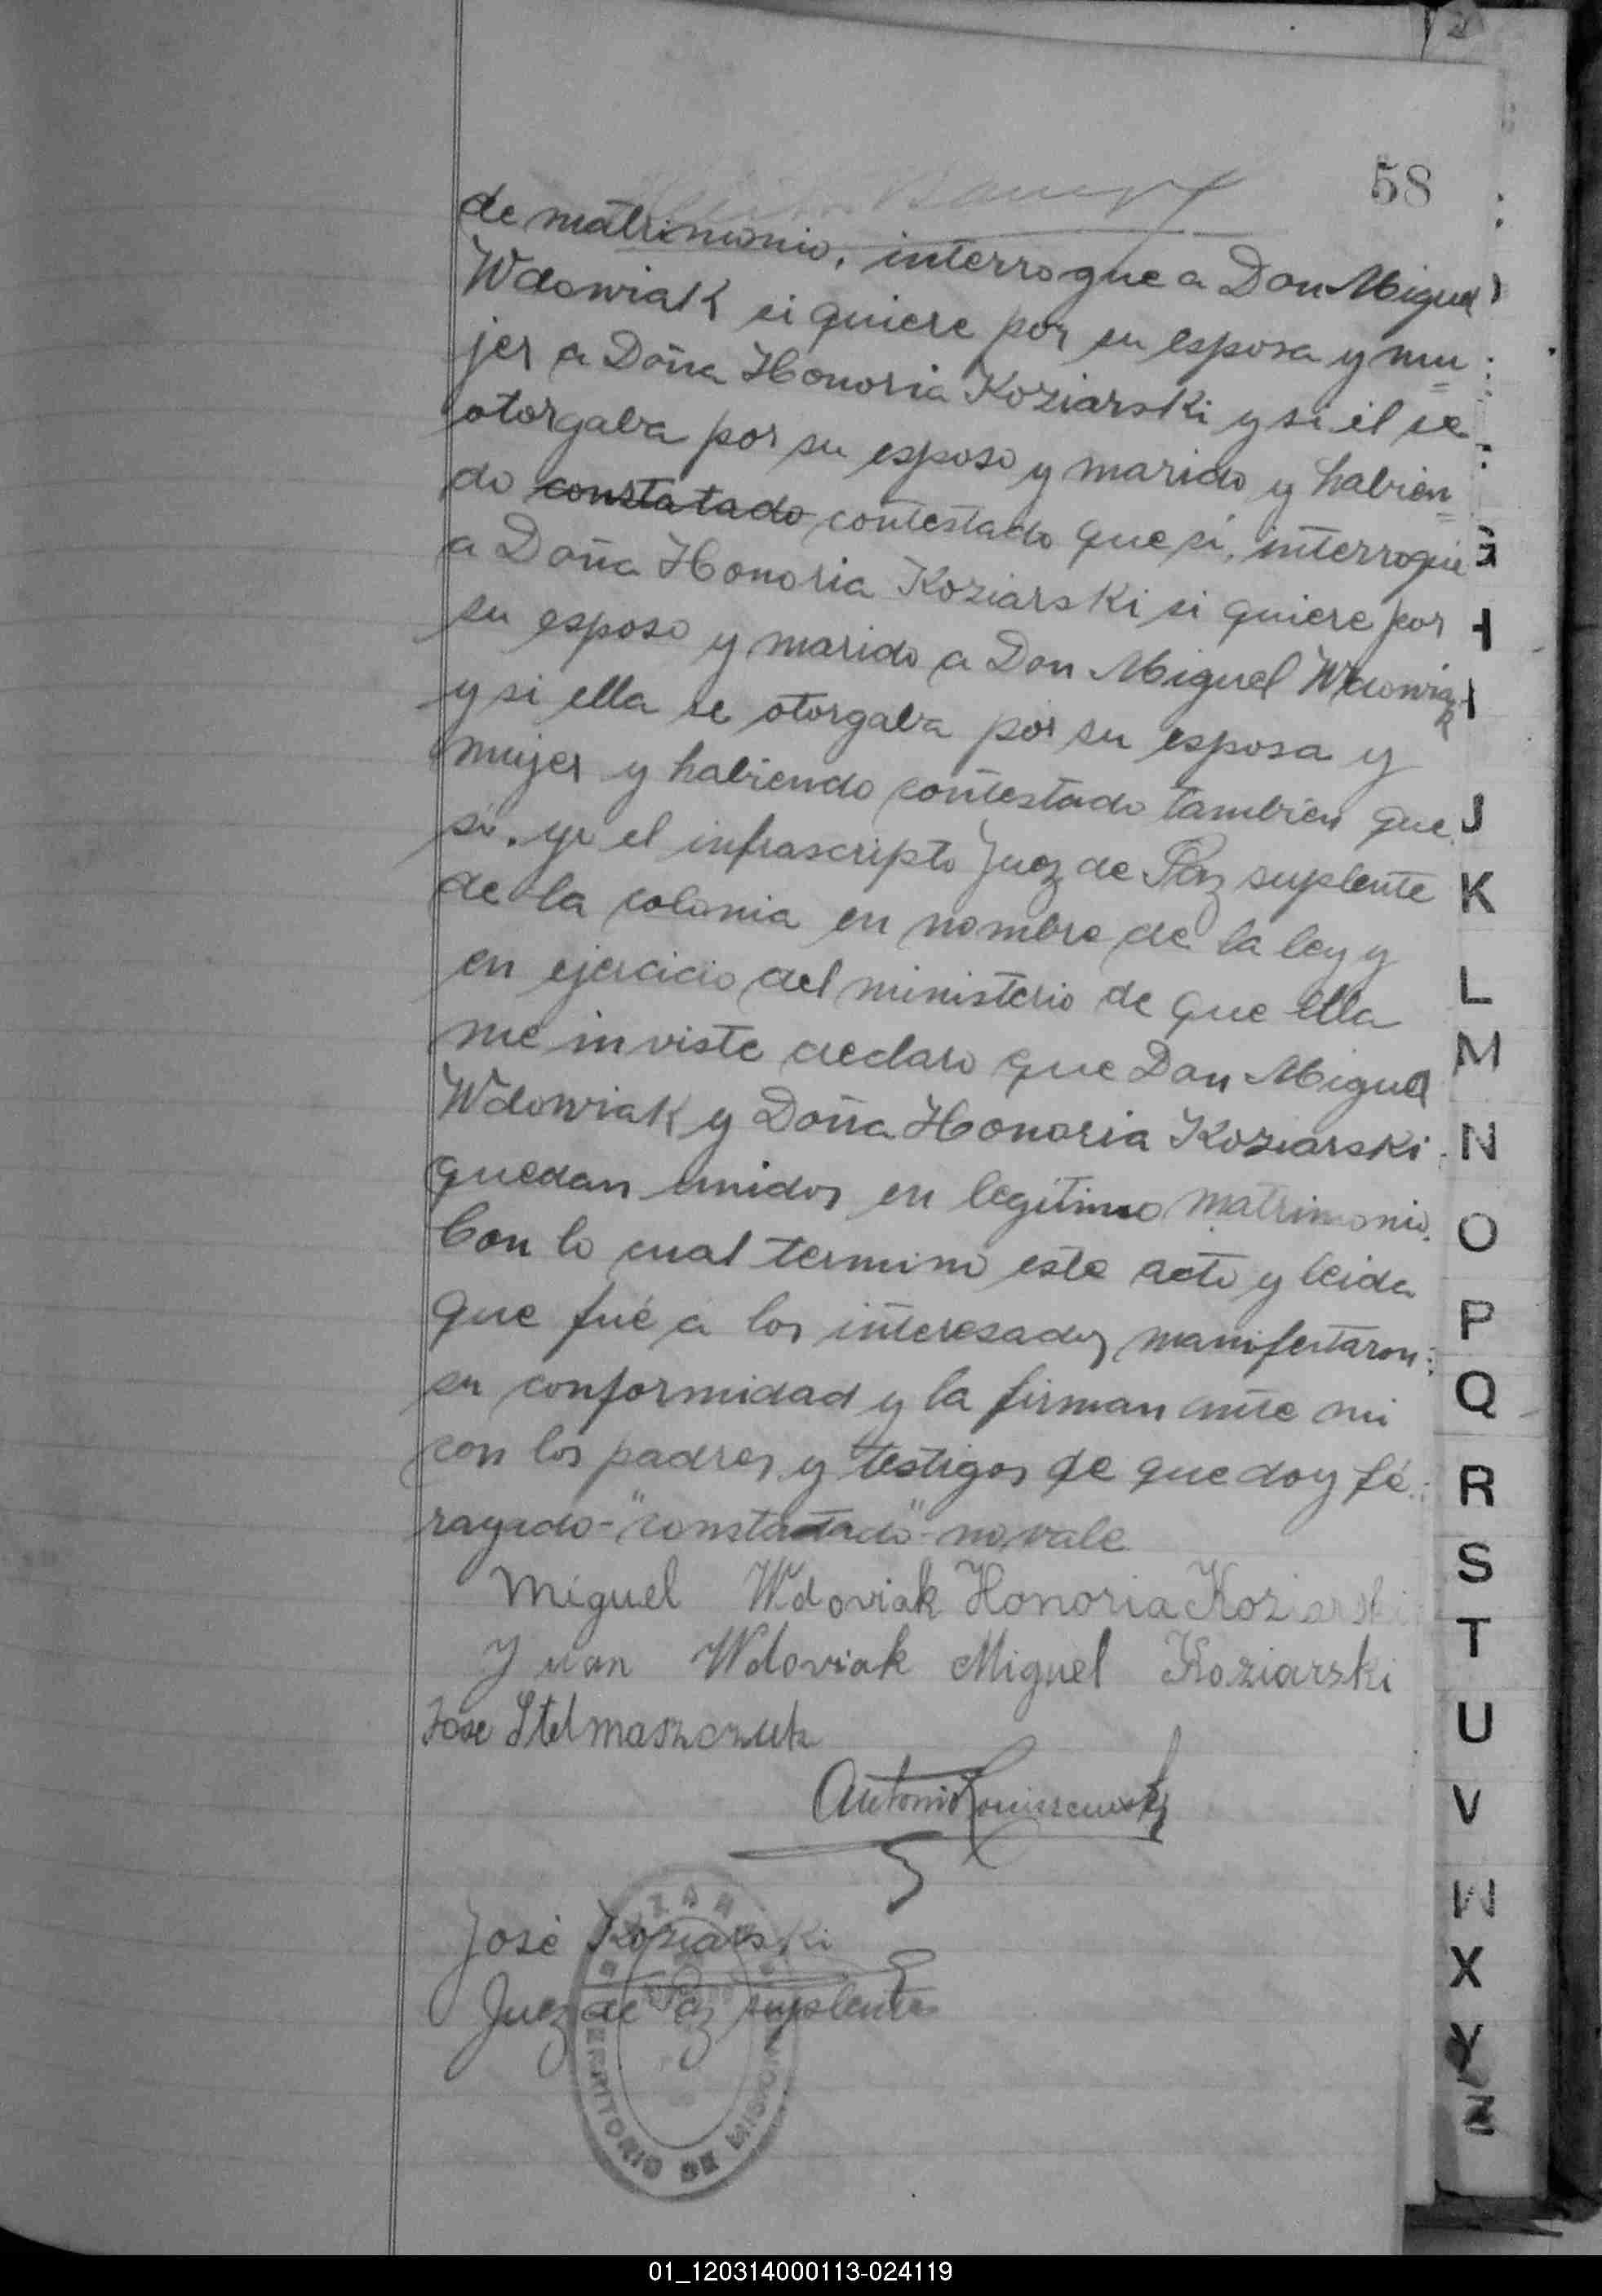 58
de matrimonio, interrogue a Don Miguel
Wdowiak si quiere por su esposa y mu
jer a Doña Honoria Koziarski y si él se
otorgaba por su esposo y marido y habien
do constatado contestado que si, interrogué
a Doña Honoria Koziarski si quiere por
su esposo y marido a Don Miguel Wdowiak
y si ella se otorgaba por su esposa y
mujer y habiendo contestado tambien que
si, yo el infrascripto Juez de Paz suplente
de la colonia en nombre de la ley y
en ejercicio del ministerio de que ella
me inviste declaro que Don Miguel
Wdowiak y Doña Honoria Koziarski
quedan unidos en legítimo matrimonio.
Con lo cual termino este acto y leida
que fué a los interesados manifestaron
su conformidad y la firman ante mi
con los padres y testigos de que doy fé
rayado-"constatado"-no vale
Miguel Wdoviak Honoria Koziarski
Juan Wdoviak Miguel Koziarski
Jose Stelmaszczuk
Antonio
José Koziarski
Juez de Paz suplente
TERRITORIO DE MISIONES
G
H
I
J
K
L
M
N
O
P
Q
R
S
T
U
V
W
X
Y
Z
01_120314000113-024119